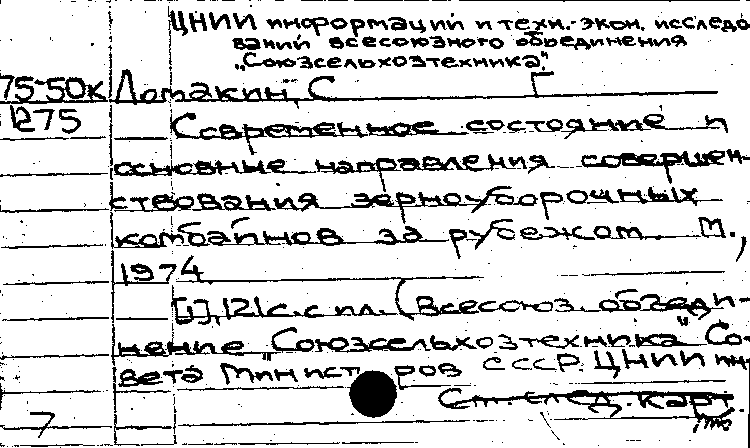 ЦНИИ информаций и техн.-экон. исследо
ваний всесоюзного объединения
„Союзсельхозтехника".
75-50к Ломакин, С Г
1275 Современное состояние и
основные направления совершен-
ствования зерноуборочных
комбайнов за рубежом. М.,
1974.
[1], 121 с. с ил. (Всесоюз. объеди-
нение „Союзсельхозтехника" Со-
вета Министров СССР. ЦНИИ ин-
См. след. карт.
7